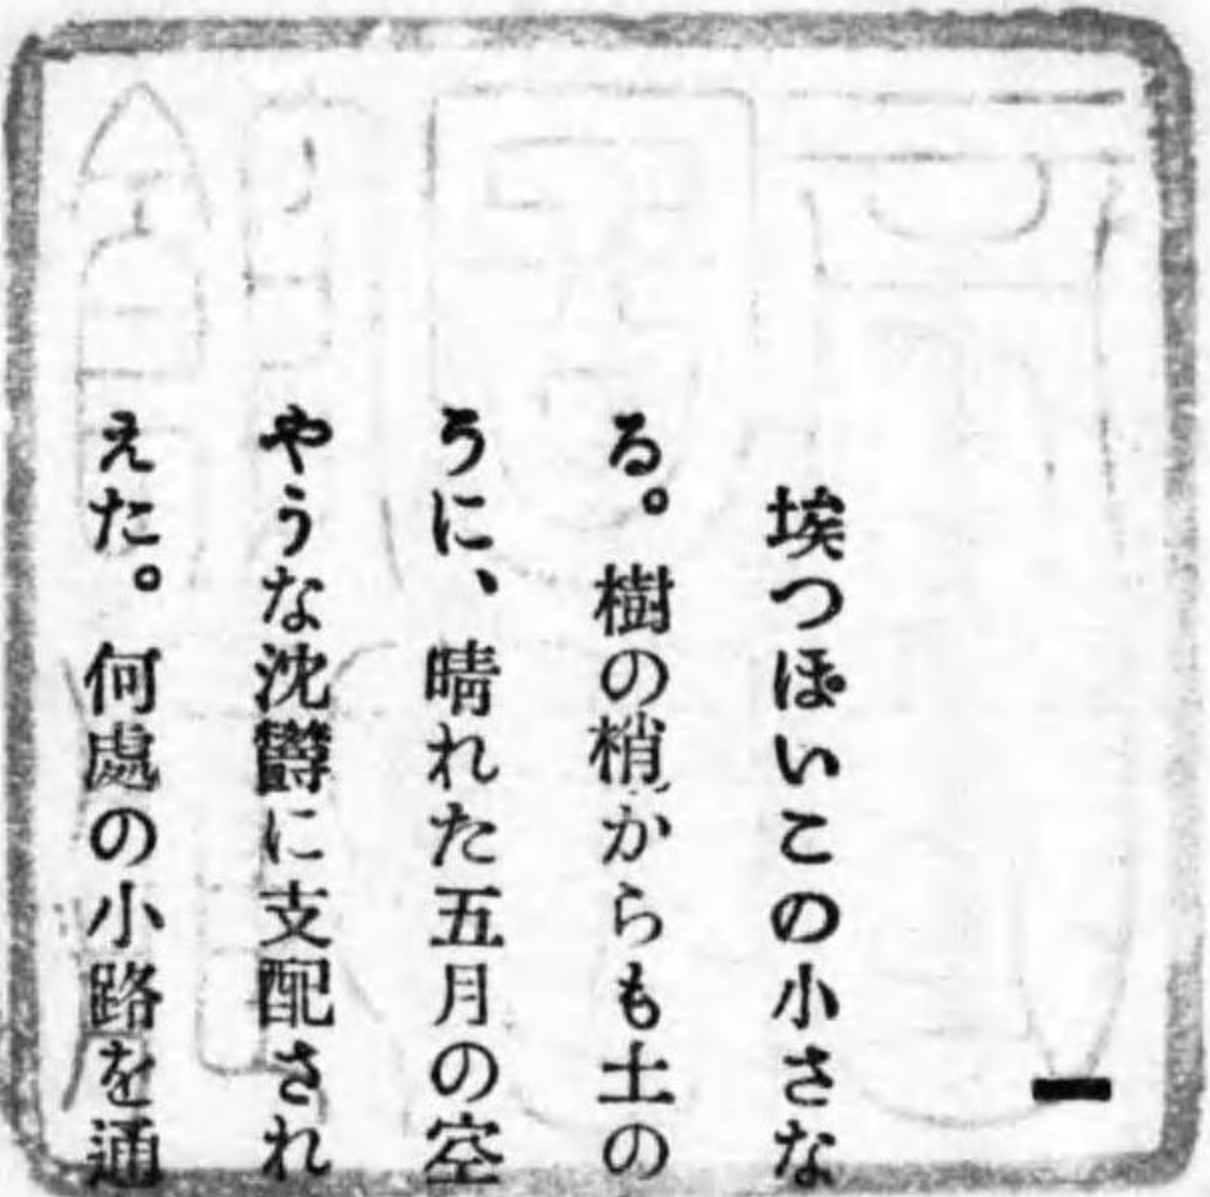 一
埃つぽいこの小さな
る。樹の梢からも土の
うに、晴れた五月の空
やうな沈鬱に支配され
えた。何處の小路を通